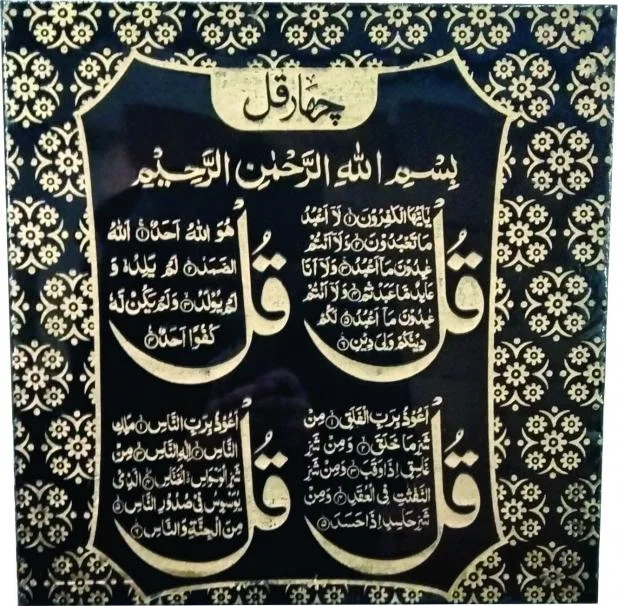 چہار قل
بِسْمِ اللهِ الرَّحْمٰنِ الرَّحِيْمِ
قُلْ
يٰٓاَيُّهَا الْكٰفِرُوْنَ ۙ۱ لَآ اَعْبُدُ
مَا تَعْبُدُوْنَ ۙ۲ وَلَآ اَنْتُمْ
عٰبِدُوْنَ مَآ اَعْبُدُ ۚ۳ وَلَآ اَنَا
عَابِدٌ مَّا عَبَدْتُّمْ ۙ۴ وَلَآ اَنْتُمْ
عٰبِدُوْنَ مَآ اَعْبُدُ ۵ لَكُمْ
دِيْنُكُمْ وَلِيَ دِيْنِ ۶
قُلْ
هُوَ اللهُ اَحَدٌ ۱ اَللهُ
الصَّمَدُ ۲ لَمْ يَلِدْ ۙ وَ
لَمْ يُوْلَدْ ۳ وَلَمْ يَكُنْ لَّهٗ
كُفُوًا اَحَدٌ ۴
قُلْ
اَعُوْذُ بِرَبِّ الْفَلَقِ ۱ مِنْ
شَرِّ مَا خَلَقَ ۲ وَمِنْ شَرِّ
غَاسِقٍ اِذَا وَقَبَ ۳ وَمِنْ شَرِّ
النَّفّٰثٰتِ فِي الْعُقَدِ ۴ وَمِنْ
شَرِّ حَاسِدٍ اِذَا حَسَدَ ۵
قُلْ
اَعُوْذُ بِرَبِّ النَّاسِ ۱ مَلِكِ
النَّاسِ ۲ اِلٰهِ النَّاسِ ۳ مِنْ
شَرِّ الْوَسْوَاسِ الْخَنَّاسِ ۴ الَّذِيْ
يُوَسْوِسُ فِيْ صُدُوْرِ النَّاسِ ۵
مِنَ الْجِنَّةِ وَالنَّاسِ ۶